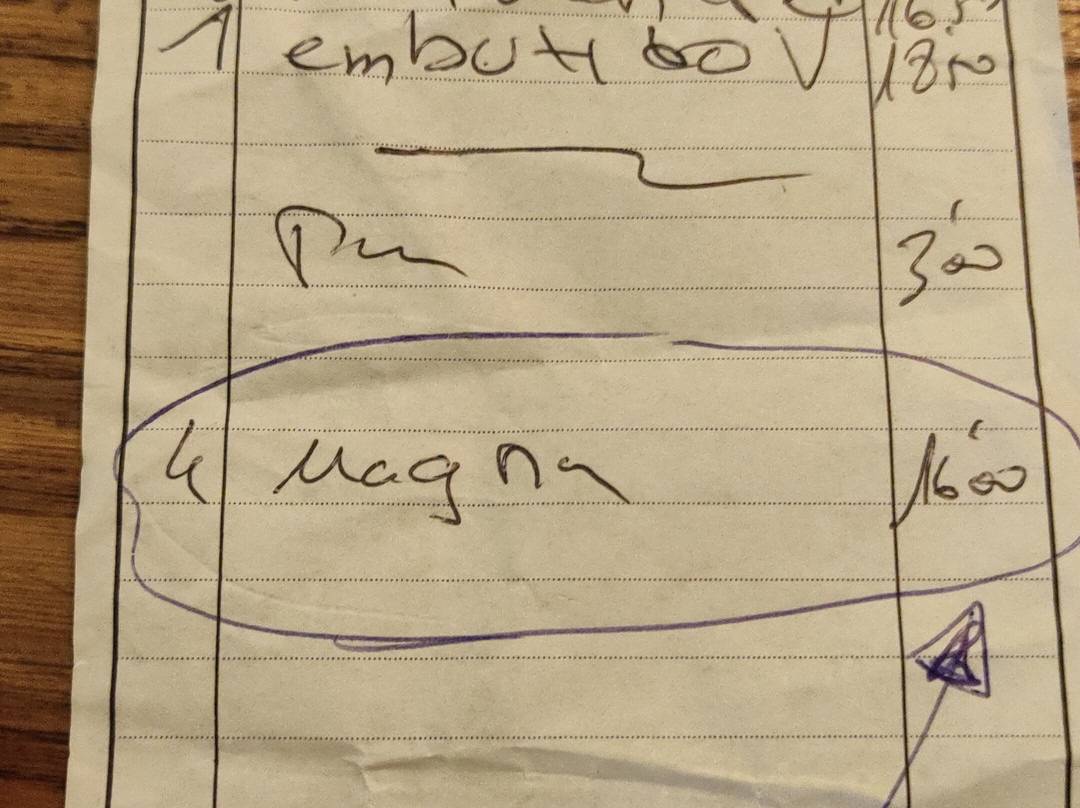 1 embutido V 18'50
Pan 3'00
4 Magna 16'00